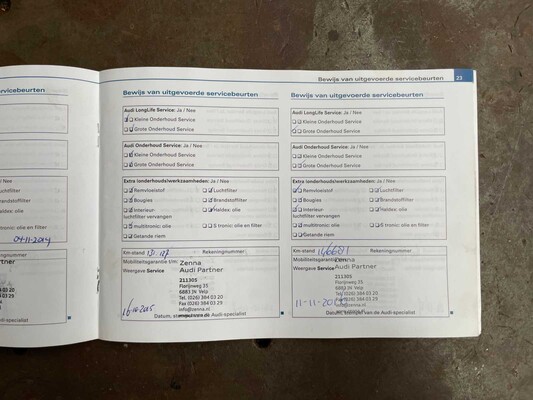 rvicebeurten
04-11-2014
Luchtfilter
Brandstoffilter
Haldex: olie
tronic: olie en filter
Audi-specialist
Bewijs van uitgevoerde servicebeurten
Audi LongLife Service: Ja / Nee
Kleine Onderhoud Service
Grote Onderhoud Service
Audi Onderhoud Service: Ja / Nee
Kleine Onderhoud Service
Grote Onderhoud Service
Extra (onderhouds)werkzaamheden: Ja / Nee
Remvloeistof Luchtfilter
Bougies Brandstoffilter
Interieur- Haldex: olie
luchtfilter vervangen
multitronic: olie S tronic: olie en filter
Getande riem
Km-stand Rekeningnummer
Mobiliteitsgarantie t/m: Zenna
Weergave Service Audi Partner
211305
Florijnweg 35
6883 JN Velp
Tel. (026) 384 03 20
Fax (026) 384 03 29
info@zenna.nl
16-10-2015
Datum, stempel van de Audi-specialist
Bewijs van uitgevoerde servicebeurten 23
Bewijs van uitgevoerde servicebeurten
Audi LongLife Service: Ja / Nee
Kleine Onderhoud Service
Grote Onderhoud Service
Audi Onderhoud Service: Ja / Nee
Kleine Onderhoud Service
Grote Onderhoud Service
Extra (onderhouds)werkzaamheden: Ja / Nee
Remvloeistof Luchtfilter
Bougies Brandstoffilter
Interieur- Haldex: olie
luchtfilter vervangen
multitronic: olie S tronic: olie en filter
Getande riem
Km-stand 146681 Rekeningnummer
Mobiliteitsgarantie Zenna
Weergave Service Audi Partner
211305
Florijnweg 35
6883 JN Velp
Tel. (026) 384 03 20
Fax (026) 384 03 29
info@zenna.nl
Datum, stempel van de Audi-specialist